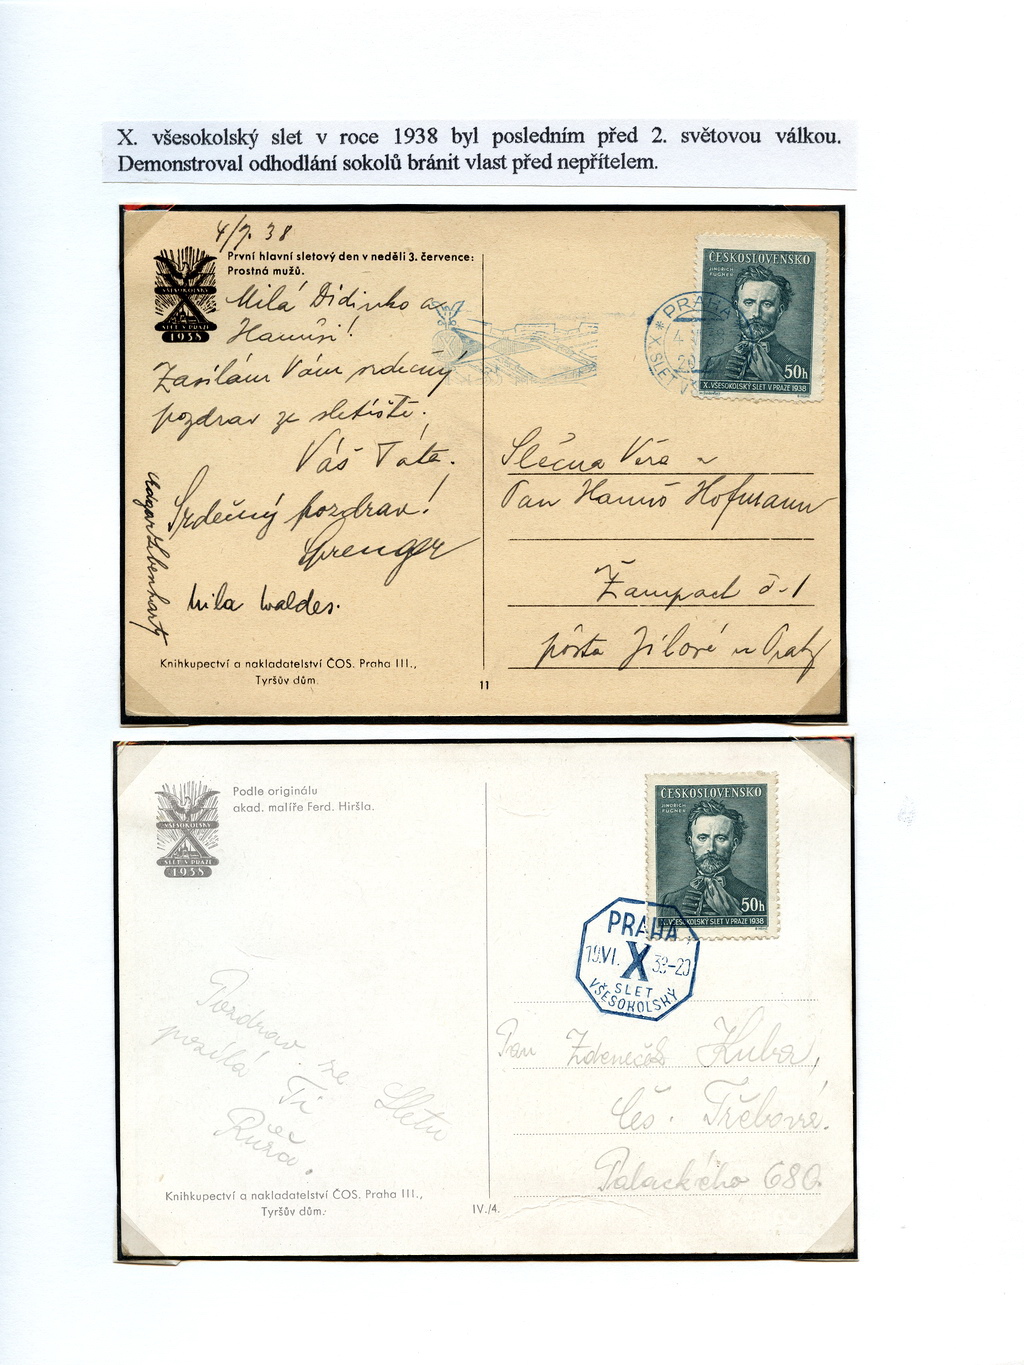 X. všesokolský slet v roce 1938 byl posledním před 2. světovou válkou.
Demonstroval odhodlání sokolů bránit vlast před nepřítelem.
4/7. 38
První hlavní sletový den v neděli 3. července:
Prostná mužů.
VŠESOKOLSKÝ
X
SLET V PRAZE
1938
Milá Didinko a
Hanuši!
Zasílám Vám srdečný
pozdrav ze sletiště.
Váš Táta.
Srdečný pozdrav!
Sprenger
Mila Waldes.
Knihkupectví a nakladatelství ČOS. Praha III.,
Tyršův dům.
11
ČESKOSLOVENSKO
JINDŘICH
FÜGNER
50h
X. VŠESOKOLSKÝ SLET V PRAZE 1938
PRAHA
X. SLET V
Slečna Věra a
Pan Hanuš Hofmann
Žampach č. 1
pošta Jílové u Prahy
Podle originálu
akad. malíře Ferd. Hiršla.
VŠESOKOLSKÝ
X
SLET V PRAZE
1938
Pozdrav ze Sletu
posílá Ti
Růža.
Knihkupectví a nakladatelství ČOS. Praha III.,
Tyršův dům.
IV./4.
ČESKOSLOVENSKO
JINDŘICH
FÜGNER
50h
X. VŠESOKOLSKÝ SLET V PRAZE 1938
PRAHA
19.VI. X 38-20
SLET
VŠESOKOLSKÝ
Pan Zdeneček Kuba,
Čes. Třebová.
Palackého 680.